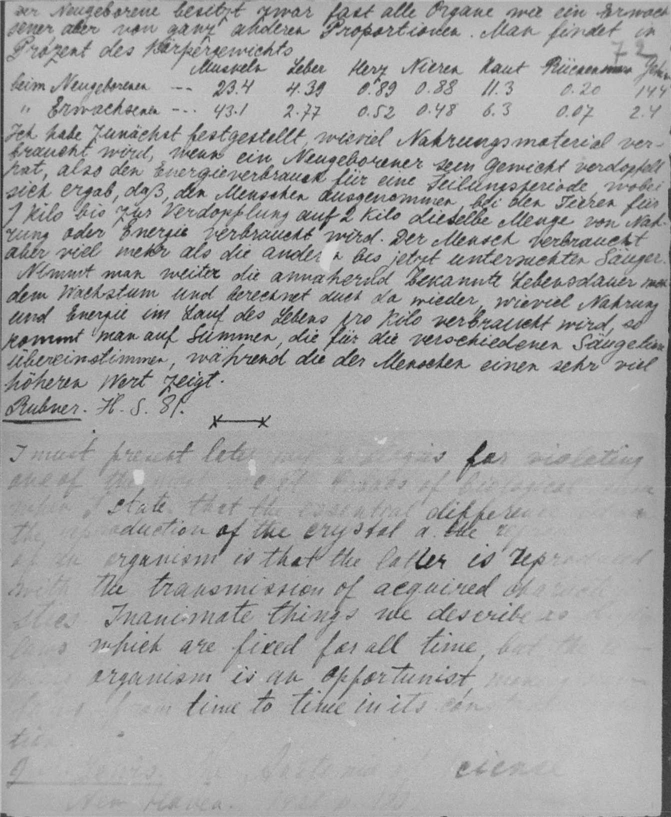 der Neugeborene besitzt zwar fast alle Organe wie ein Erwach
sener aber von ganz anderen Proportionen. Man findet in
Prozent des Körpergewichts 72
Muskeln Leber Herz Nieren Haut Gehirn
beim Neugeborenen --- 23.4 4.39 0.89 0.88 11.3 0.20 14.4
" Erwachsenen --- 43.1 2.77 0.52 0.48 6.3 0.07 2.4
Ich habe zunächst festgestellt, wieviel Nahrungsmaterial ver-
braucht wird, wenn ein Neugeborener sein Gewicht verdoppelt
hat, also den Energieverbrauch für eine Teilungsperiode, wobei
sich ergab, daß, den Menschen ausgenommen, bei den Tieren für
1 Kilo bis zur Verdopplung auf 2 Kilo dieselbe Menge von Nah-
rung oder Energie verbraucht wird. Der Mensch verbraucht
aber viel mehr als die andern bis jetzt untersuchten Säuger.
Nimmt man weiter die annähernd bekannte Lebensdauer nach
dem Wachstum und berechnet auch da wieder, wieviel Nahrung
und Energie im Lauf des Lebens pro Kilo verbraucht wird, so
kommt man auf Summen, die für die verschiedenen Säugetiere
übereinstimmen, während die der Menschen einen sehr viel
höheren Wert zeigt.
Rubner. H. S. 81.
I must present later my for violating
one of the most of biological
when I state that the essential difference
the reproduction of the crystal a. the
of an organism is that the latter is reproduced
with the transmission of acquired
stics. Inanimate things we describe as
laws which are fixed for all time, but the
organism is an opportunist,
from time to time in its
tion.
Lewis. The Anatomy of Science
New Haven.